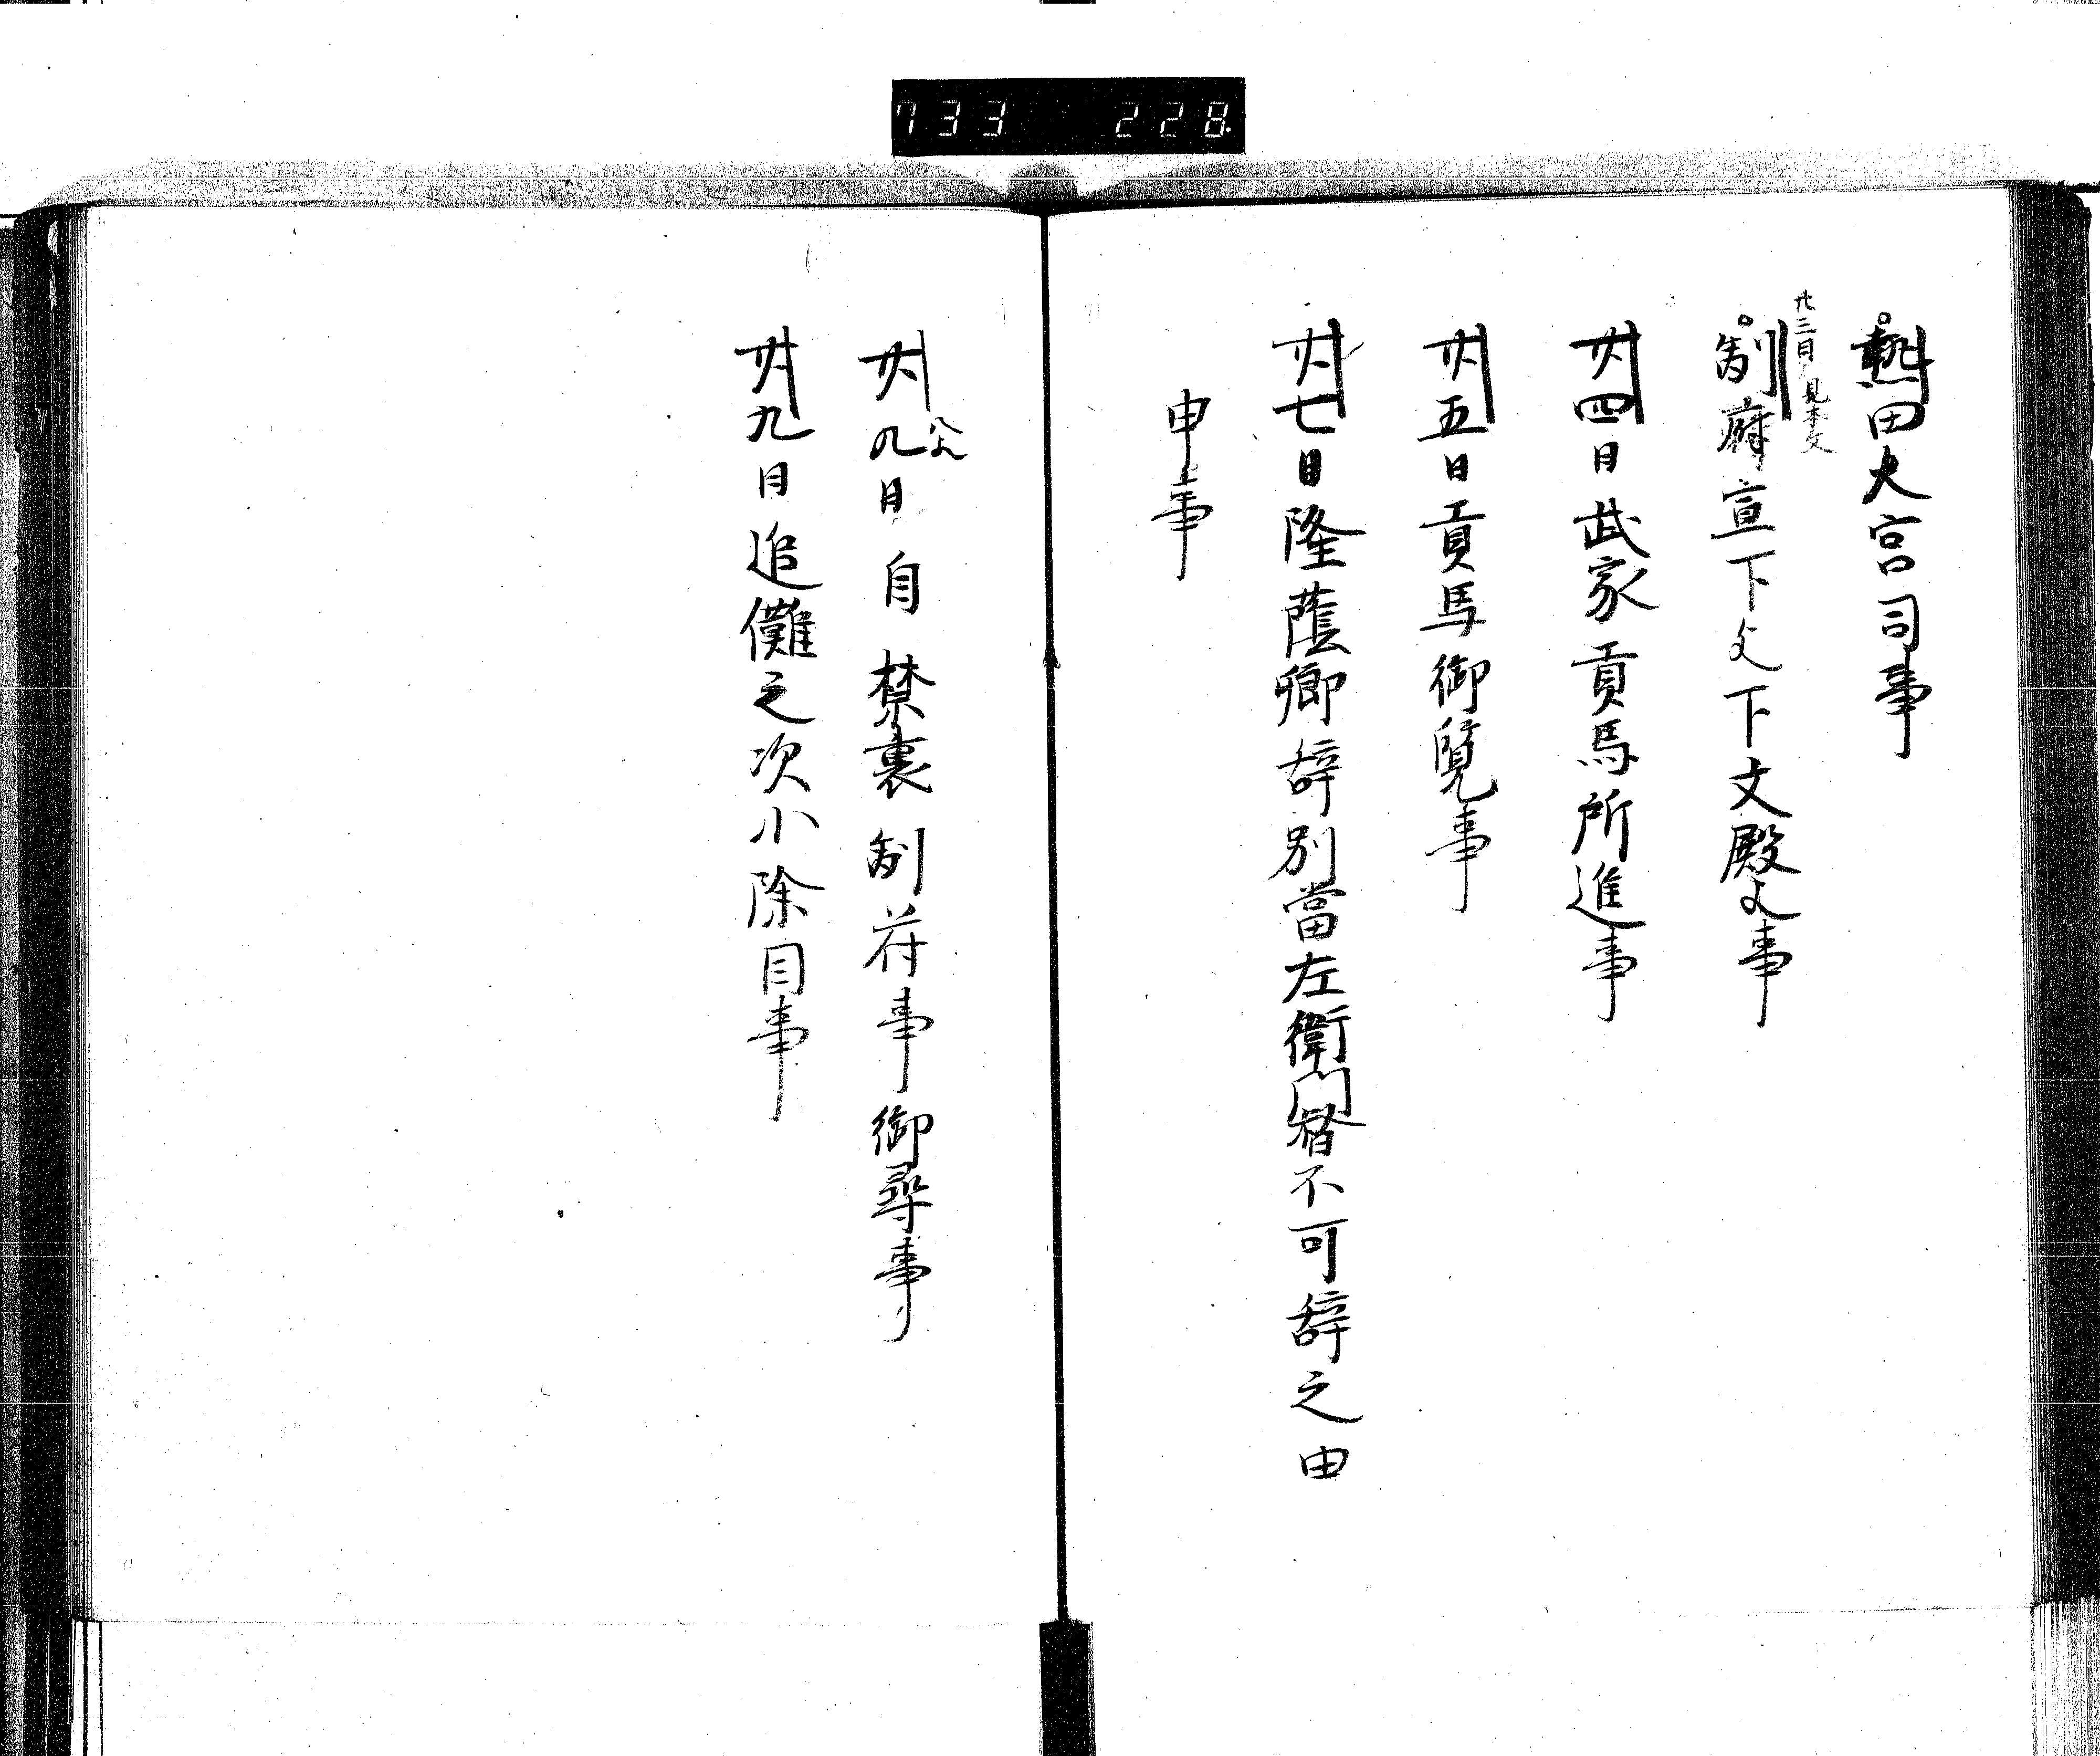 733 228
熱田大宮司事
廿三日見本文
制府宣下文下文殿文事
廿四日武家貢馬所進事
廿五日貢馬御覧事
廿七日隆蔭卿辞別當左衛門督不可辞之由
申事
廿九日自禁裏制符事御尋事
廿九日追儺之次小除目事